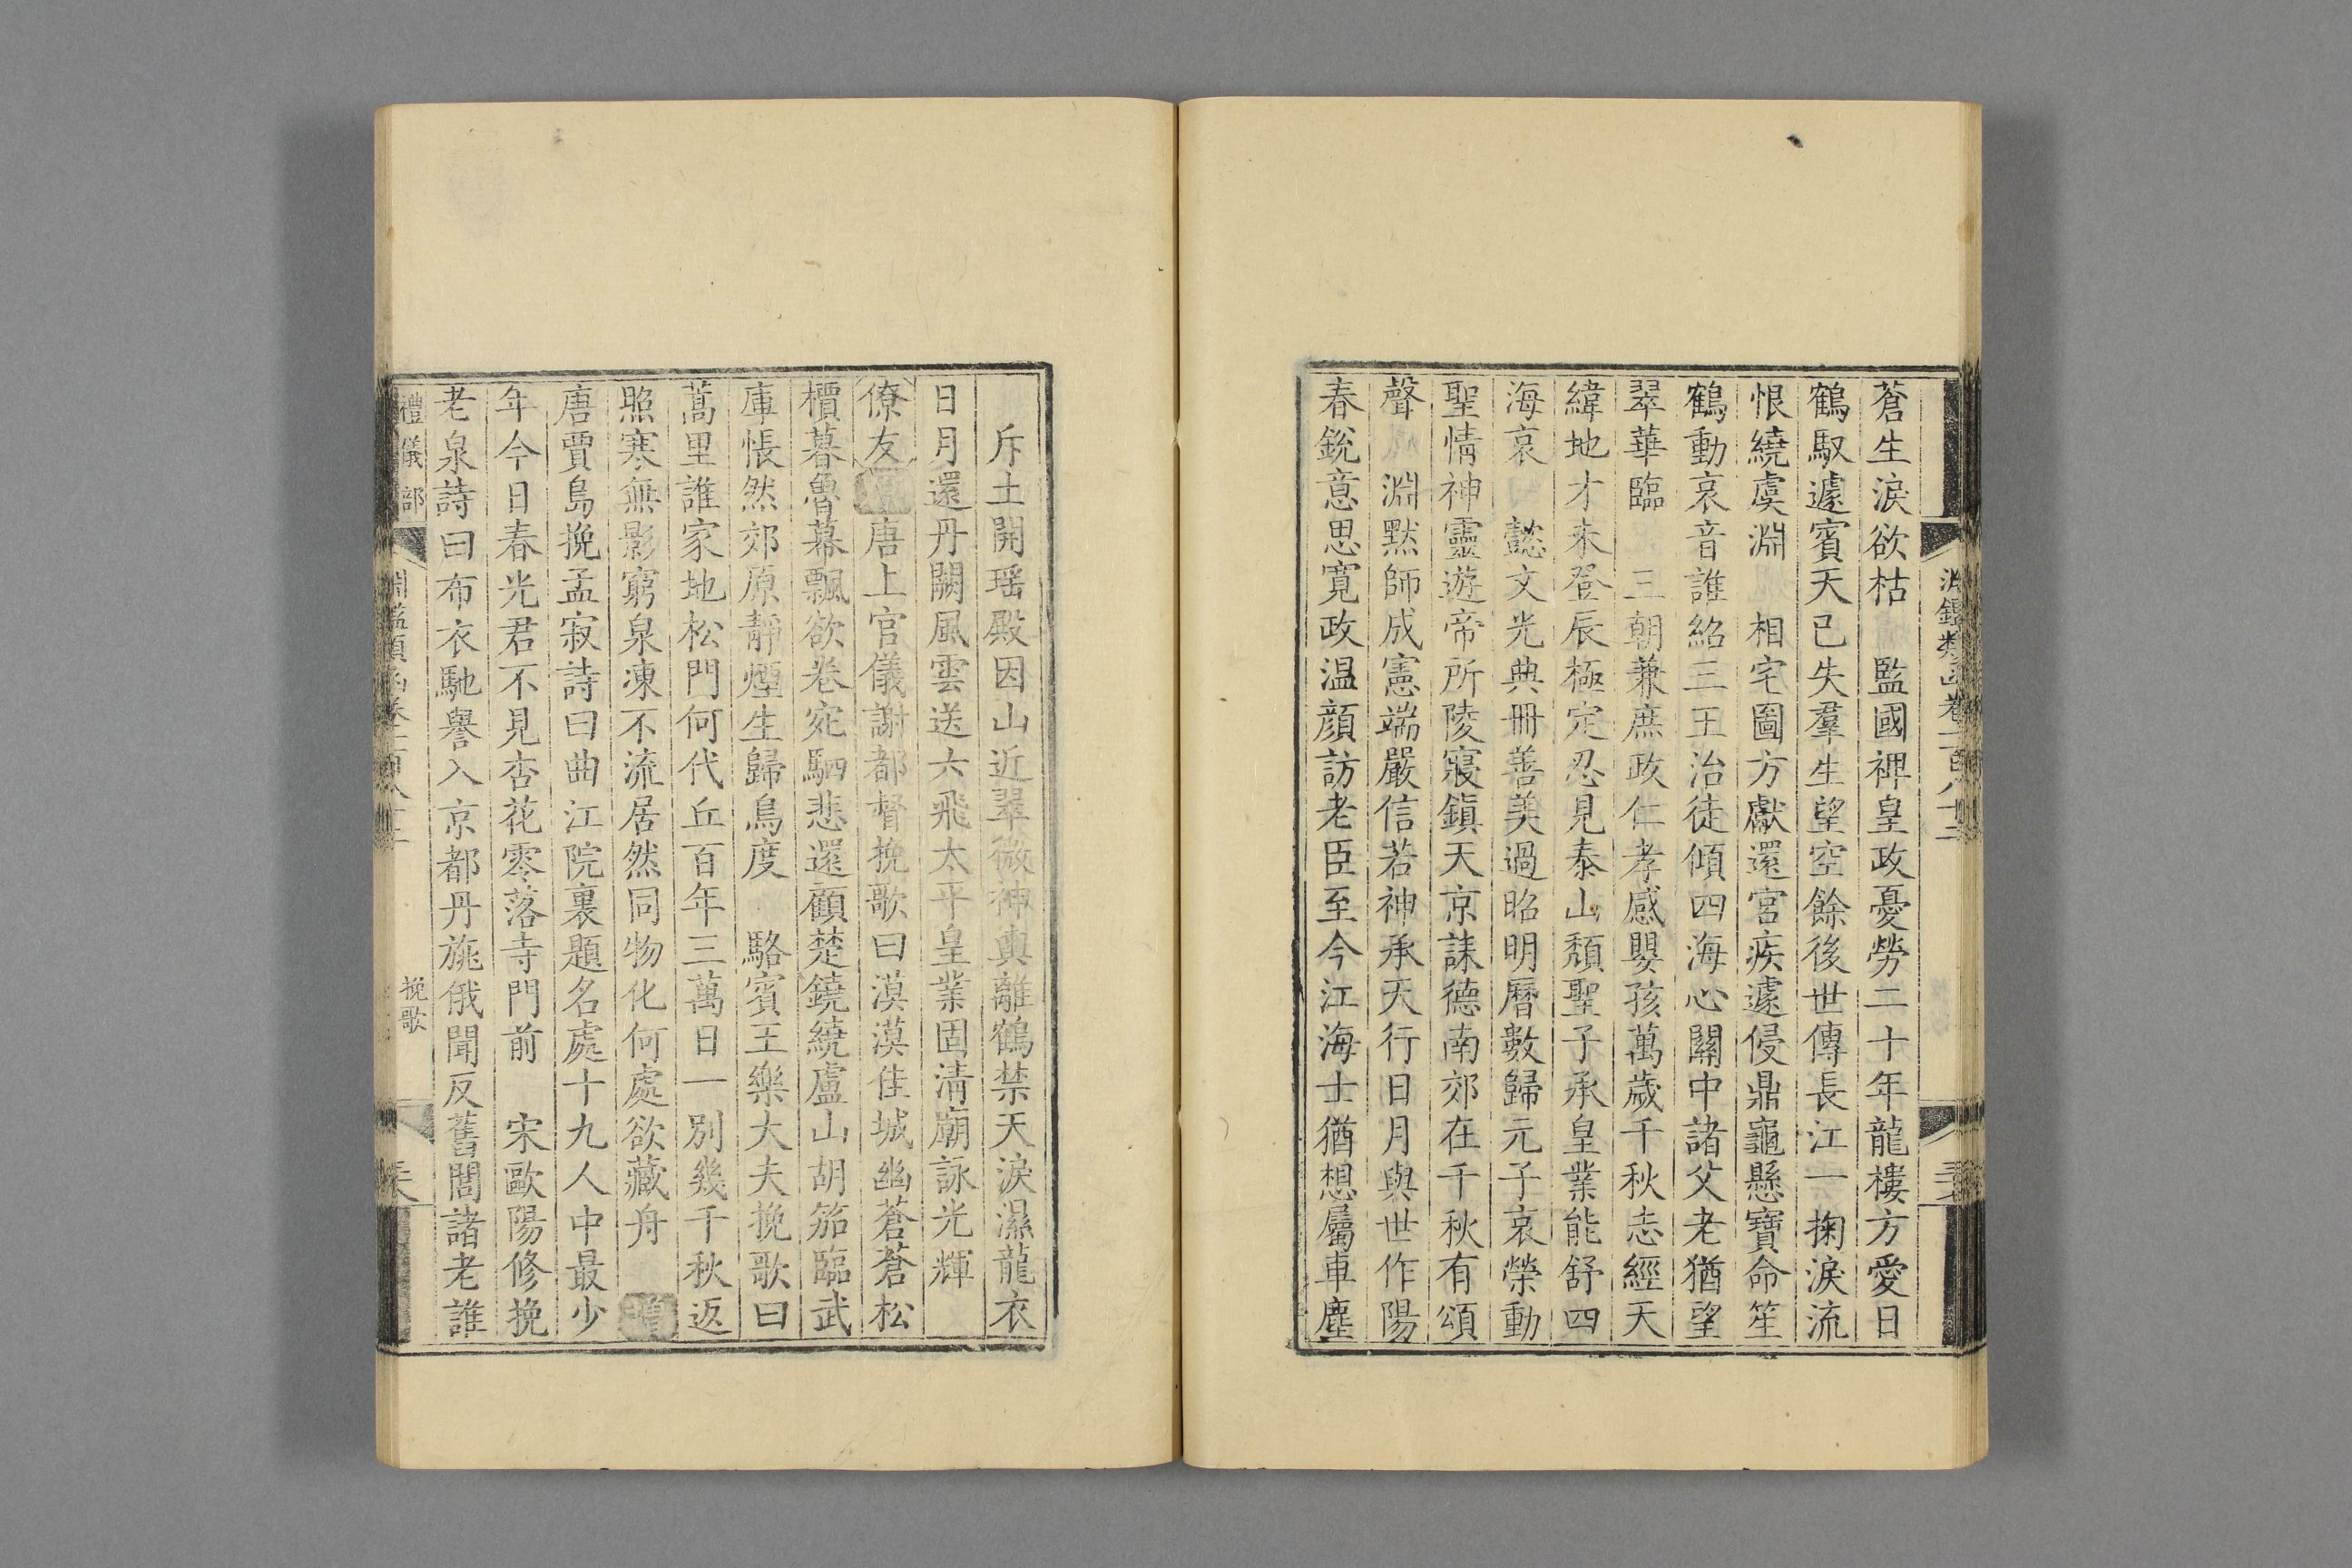 蒼生淚欲枯　監國裨皇政憂勞二十年龍樓方愛日
鶴馭遽賓天已失羣生望空餘後世傳長江一掬淚流
恨繞虞淵　相宅圖方獻還宮疾遽侵鼎龜懸寶命笙
鶴動哀音誰紹三王治徒傾四海心關中諸父老猶望
翠華臨　三朝兼庶政仁孝感嬰孩萬歲千秋志經天
緯地才未登辰極定忍見泰山頹聖子承皇業能舒四
海哀　懿文光典冊善美過昭明曆數歸元子哀榮動
聖情神靈遊帝所陵寢鎮天京誄德南郊在千秋有頌
聲　淵黙師成憲端嚴信若神承天行日月與世作陽
春銳意思寛政温顔訪老臣至今江海士猶想屬車塵
斥土開瑶殿因山近翠微神輿離鶴禁天淚濕龍衣
日月還丹闕風雲送六飛太平皇業固清廟詠光輝
僚友唐上官儀謝都督挽歌曰漠漠佳城幽蒼蒼松
檟暮魯幕飄欲卷宛駟悲還顧楚鐃繞盧山胡笳臨武
庫悵然郊原靜煙生歸鳥度　駱賓王樂大夫挽歌曰
蒿里誰家地松門何代丘百年三萬日一別幾千秋返
照寒無影窮泉凍不流居然同物化何處欲藏舟
唐賈島挽孟寂詩曰曲江院裏題名處十九人中最少
年今日春光君不見杏花零落寺門前　宋歐陽修挽
老泉詩曰布衣馳譽入京都丹旐俄聞反舊閭諸老誰
禮儀部
挽歌